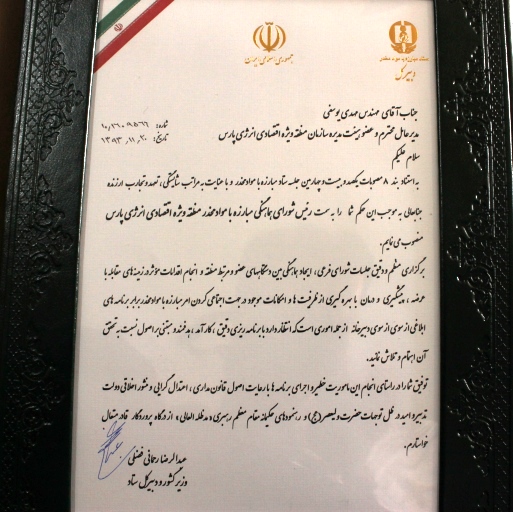 جمهوری اسلامی ایران
دبیرکل
شماره: ۱۰٫۲۶۰۹۵۶۶
تاریخ: ۱۳۹۳٫۱۱٫۲۰
جناب آقای مهندس مهدی یوسفی
مدیرعامل محترم و عضو هیئت مدیره سازمان منطقه ویژه اقتصادی انرژی پارس
سلام علیکم
به استناد بند ۸ مصوبات یکصد و بیست و چهارمین جلسه ستاد مبارزه با مواد مخدر و با عنایت به مراتب شایستگی، تعهد و تجارب ارزنده
جنابعالی به موجب این حکم شما را به سمت رئیس شورای هماهنگی مبارزه با مواد مخدر منطقه ویژه اقتصادی انرژی پارس
منصوب می نمایم.
برگزاری منظم و دقیق جلسات شورای فرعی، ایجاد هماهنگی بین دستگاههای عضو و مرتبط منطقه و انجام اقدامات موثر در زمینه های مقابله با
عرضه، پیشگیری و درمان با بهره گیری از ظرفیت ها و امکانات موجود در جهت اجتماعی کردن امر مبارزه با مواد مخدر برابر برنامه های
ابلاغی از سوی از سوی دبیرخانه از جمله اموری است که انتظار دارد با برنامه ریزی دقیق، کارآمد، هدفمند و مبتنی بر اصول نسبت به تحقق
آن اهتمام و تلاش نمائید.
توفیق شما را در راستای انجام این ماموریت خطیر و اجرای برنامه ها با رعایت اصول قانون مداری، اعتدال گرایی و منشور اخلاقی دولت
تدبیر و امید در ظل توجهات حضرت ولیعصر (عج) و رهنمودهای حکیمانه مقام معظم رهبری «مدظله العالی»، از درگاه پروردگار قادر متعال
خواستارم.
عبدالرضا رحمانی فضلی
وزیر کشور و دبیرکل ستاد